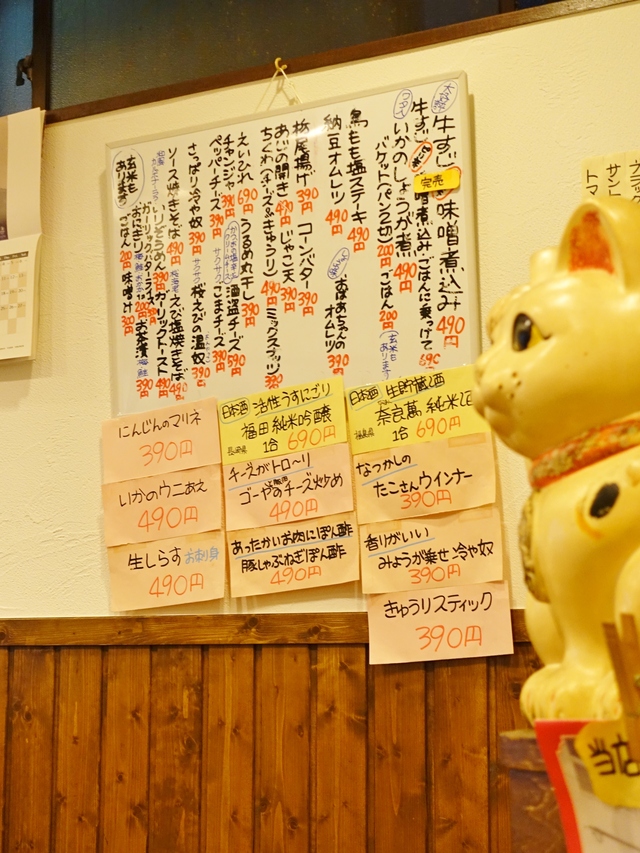 牛すじ 味噌煮込み 490円
完売
牛すじ 味噌煮込み ごはんに乗っけて 690
いかのしょうが煮 490円
バケット(パン2切) 200円 ごはん 200円
玄米もあります
鳥もも塩ステーキ 490円
納豆オムレツ 490円
おばあちゃんのオムレツ 390円
栃尾揚げ 390円
コーンバター 390円
あじの開き 490円
じゃこ天 390円
ちくわ(チーズ&きゅうり) 490円
ミックスナッツ 390円
えいひれ 690円
うるめ丸干し 390円
チャンジャ 390円
酒盗チーズ 590円
ペッパーチーズ 390円
サクサクごまチーズ 390円
さっぱり冷や奴 390円
サクサク桜えびの温奴 390円
ソース焼きそば 490円
えび塩焼きそば 490円
いりぞうめん 390円
ガーリックトースト 490円
ガーリックバターライス 390円
おにぎり 200円
お茶漬 390円
玄米もあります
ごはん 200円
味噌汁 300円
にんじんのマリネ
390円
いかのウニあえ
490円
生しらす お刺身
490円
日本酒 活性うすにごり
福田 純米吟醸
長崎県 1合 690円
チーズがトロ〜リ
ゴーヤのチーズ炒め
490円
あったかいお肉にぽん酢
豚しゃぶねぎぽん酢
490円
日本酒 生貯蔵酒
奈良萬 純米酒
福島県 1合 690円
なつかしの
たこさんウインナー
390円
香りがいい
みょうが乗せ 冷や奴
390円
きゅうりスティック
390円
サント
トマ
当店